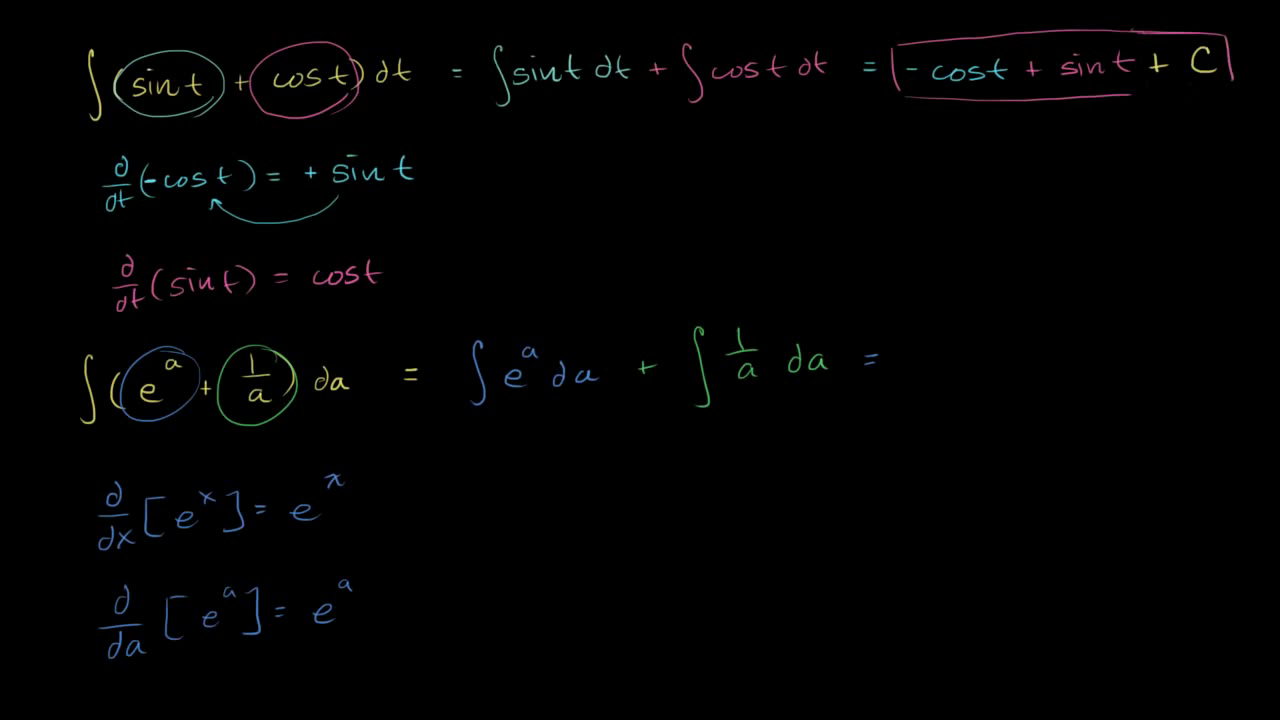 ∫(sin t + cos t) dt = ∫sin t dt + ∫cos t dt = -cos t + sin t + C
d/dt (-cos t) = + sin t
d/dt (sin t) = cos t
∫(e^a + 1/a) da = ∫e^a da + ∫1/a da =
d/dx [e^x] = e^x
d/da [e^a] = e^a